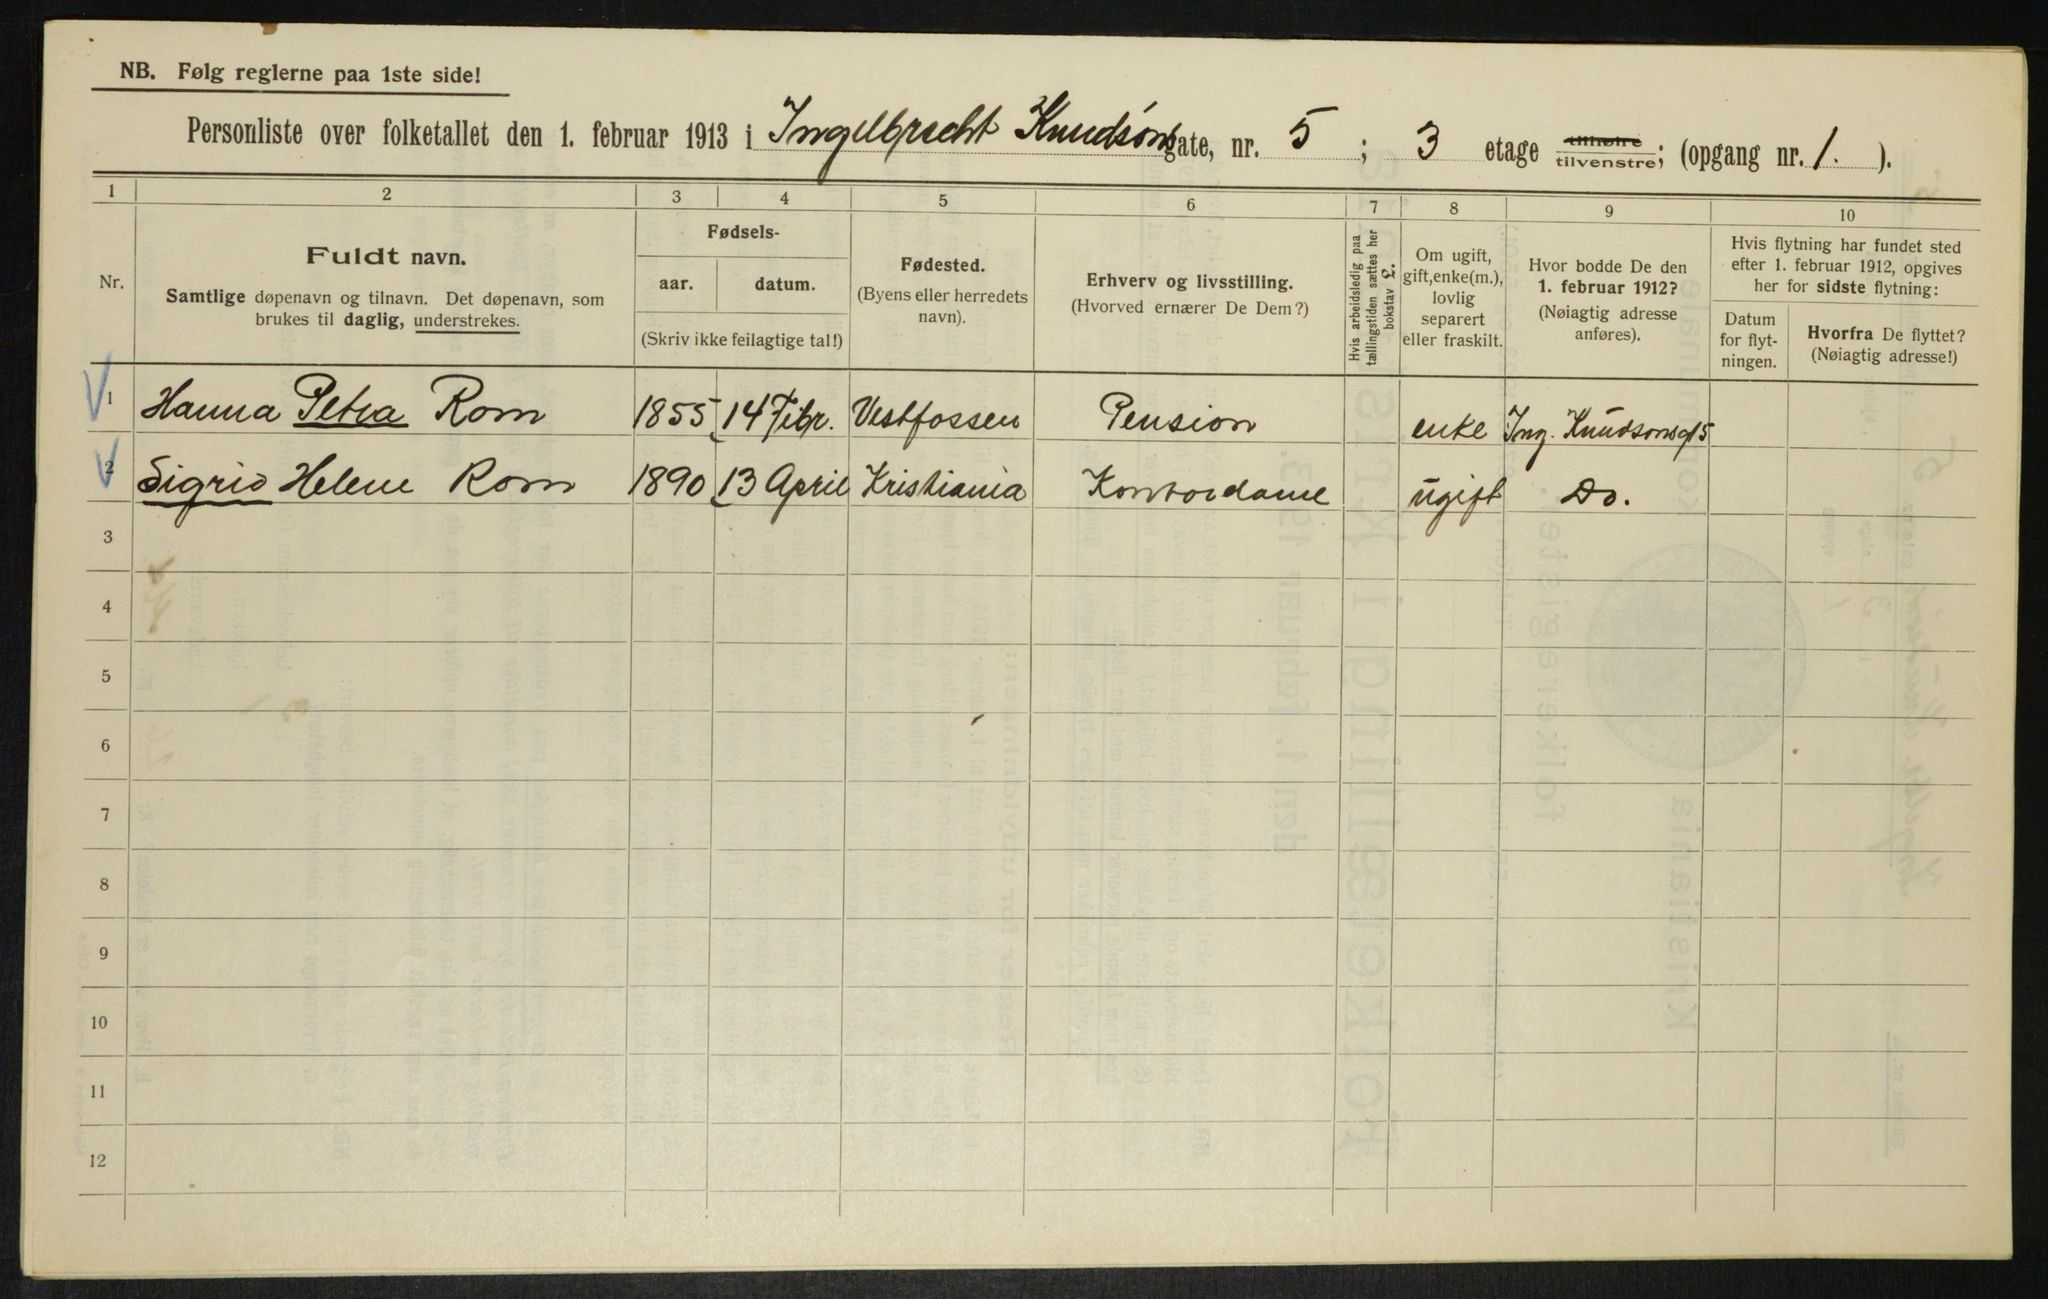 NB. Følg reglerne paa 1ste side!
Personliste over folketallet den 1. februar 1913 i Ingelbrecht Knudsøns gate, nr. 5 ; 3 etage tilhøire tilvenstre; (opgang nr. 1. ).
1 2 3 4 5 6 7 8 9 10
Nr.
Fuldt navn.
Samtlige døpenavn og tilnavn. Det døpenavn, som
brukes til daglig, understrekes.
Fødsels-
aar. datum.
(Skriv ikke feilagtige tal!)
Fødested.
(Byens eller herredets
navn).
Erhverv og livsstilling.
(Hvorved ernærer De Dem?)
Hvis arbeidsledig paa
tællingstiden sættes her
bokstav L.
Om ugift,
gift, enke(m.),
lovlig
separert
eller fraskilt.
Hvor bodde De den
1. februar 1912?
(Nøiagtig adresse
anføres).
Hvis flytning har fundet sted
efter 1. februar 1912, opgives
her for sidste flytning:
Datum
for flyt-
ningen.
Hvorfra De flyttet?
(Nøiagtig adresse!)
1 Hanna Petra Rom 1855 14 Febr. Vestfossen Pension enke Ing. Knudsonsg 5
2 Sigrid Helene Rom 1890 13 April Kristiania Kontordame ugift Do.
3
4
5
6
7
8
9
10
11
12